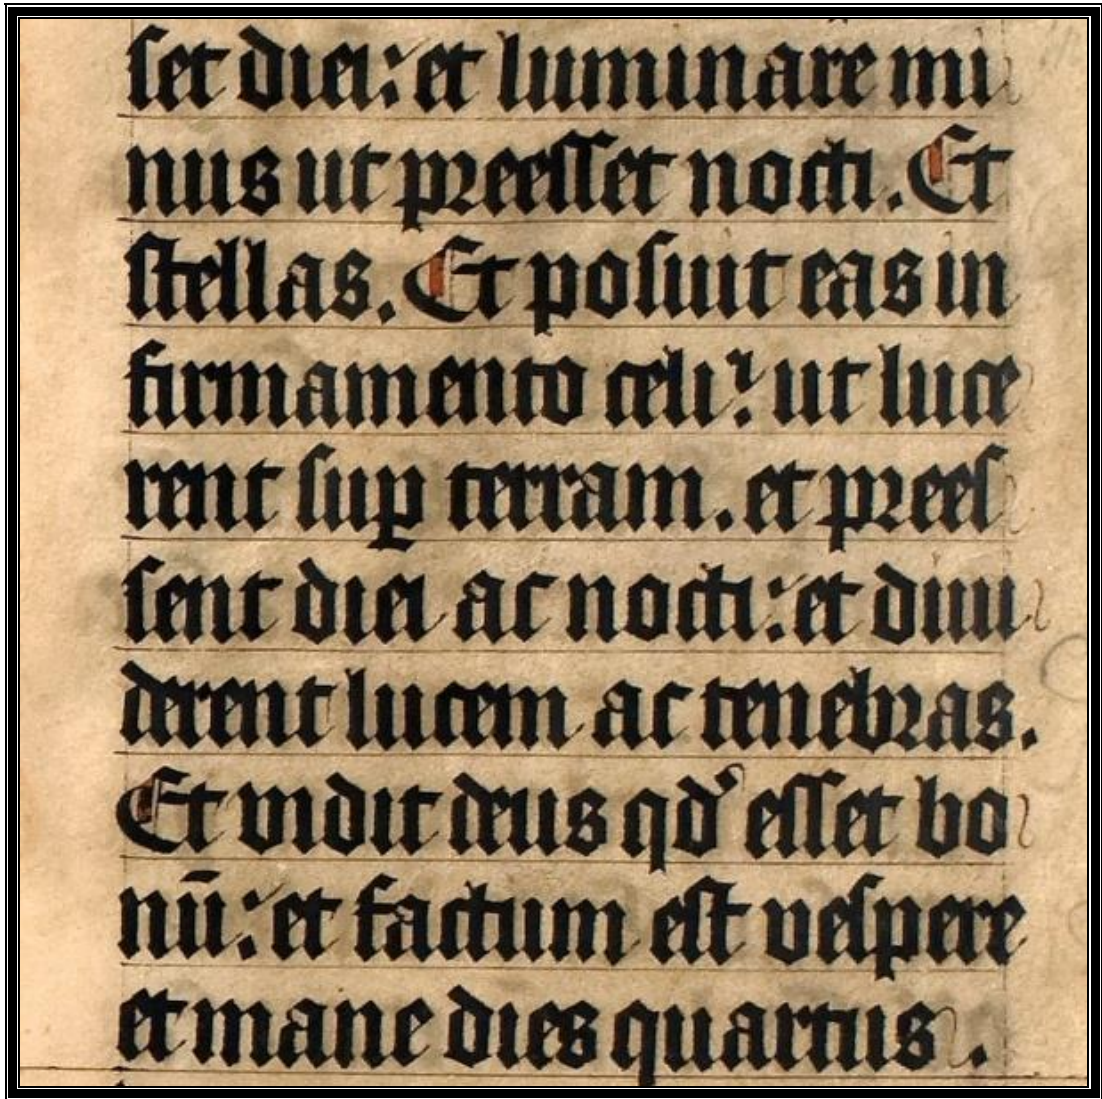 set diei: et luminare mi
nus ut preesset nocti. Et
stellas. Et posuit eas in
firmamento celi: ut luce
rent sup̲ terram. et prees
sent diei ac nocti: et diui
derent lucem ac tenebras.
Et vidit deus qd' esset bo
nū: et factum est vespere
et mane dies quartus.